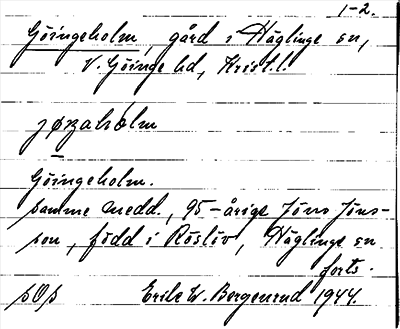 1-2.
Göingeholm, gård i Häglinge sn,
V. Göinge hd, Krist. l.
jøŋaholm
Göingeholm.
samme medd., 95-årige Jöns Jöns-
son, född i Röslöv, Häglinge sn
forts.
sOs Eric W. Bergenrud 1944.